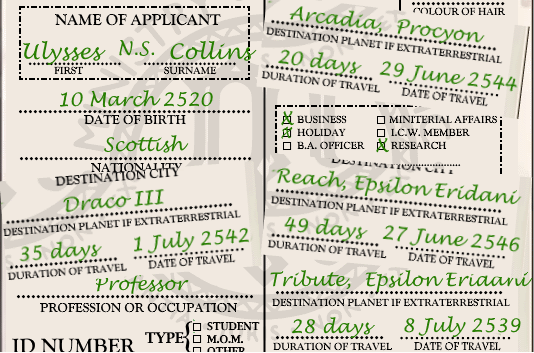 NAME OF APPLICANT
Ulysses N.S. Collins
FIRST SURNAME
10 March 2520
DATE OF BIRTH
Scottish
NATIONALITY
DESTINATION CITY
Draco III
DESTINATION PLANET IF EXTRATERRESTRIAL
35 days 1 July 2542
DURATION OF TRAVEL DATE OF TRAVEL
Professor
PROFESSION OR OCCUPATION
ID NUMBER
TYPE
STUDENT
M.O.M.
OTHER
COLOUR OF HAIR
Arcadia, Procyon
DESTINATION PLANET IF EXTRATERRESTRIAL
20 days 29 June 2544
DURATION OF TRAVEL DATE OF TRAVEL
BUSINESS MINITERIAL AFFAIRS
HOLIDAY I.C.W. MEMBER
B.A. OFFICER RESEARCH
DESTINATION CITY
Reach, Epsilon Eridani
DESTINATION PLANET IF EXTRATERRESTRIAL
49 days 27 June 2546
DURATION OF TRAVEL DATE OF TRAVEL
Tribute, Epsilon Eridani
DESTINATION PLANET IF EXTRATERRESTRIAL
28 days 8 July 2539
DURATION OF TRAVEL DATE OF TRAVEL